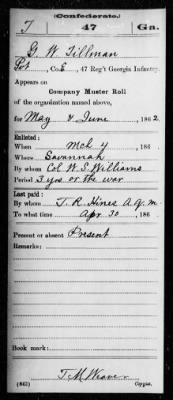 (Confederate.)
T 47 Ga.
G. W. Tillman
Pvt, Co. E, 47 Reg't Georgia Infantry.
Appears on
Company Muster Roll
of the organization named above,
for May & June, 1862.
Enlisted:
When Mch 4, 186
Where Savannah
By whom Col W. S. Williams
Period 3 yrs or the war
Last paid:
By whom T. R. Hines A.Q.M.
To what time Apr 30, 186
Present or absent Present
Remarks:
Book mark:
T. M. Weaver
(642) Copyist.